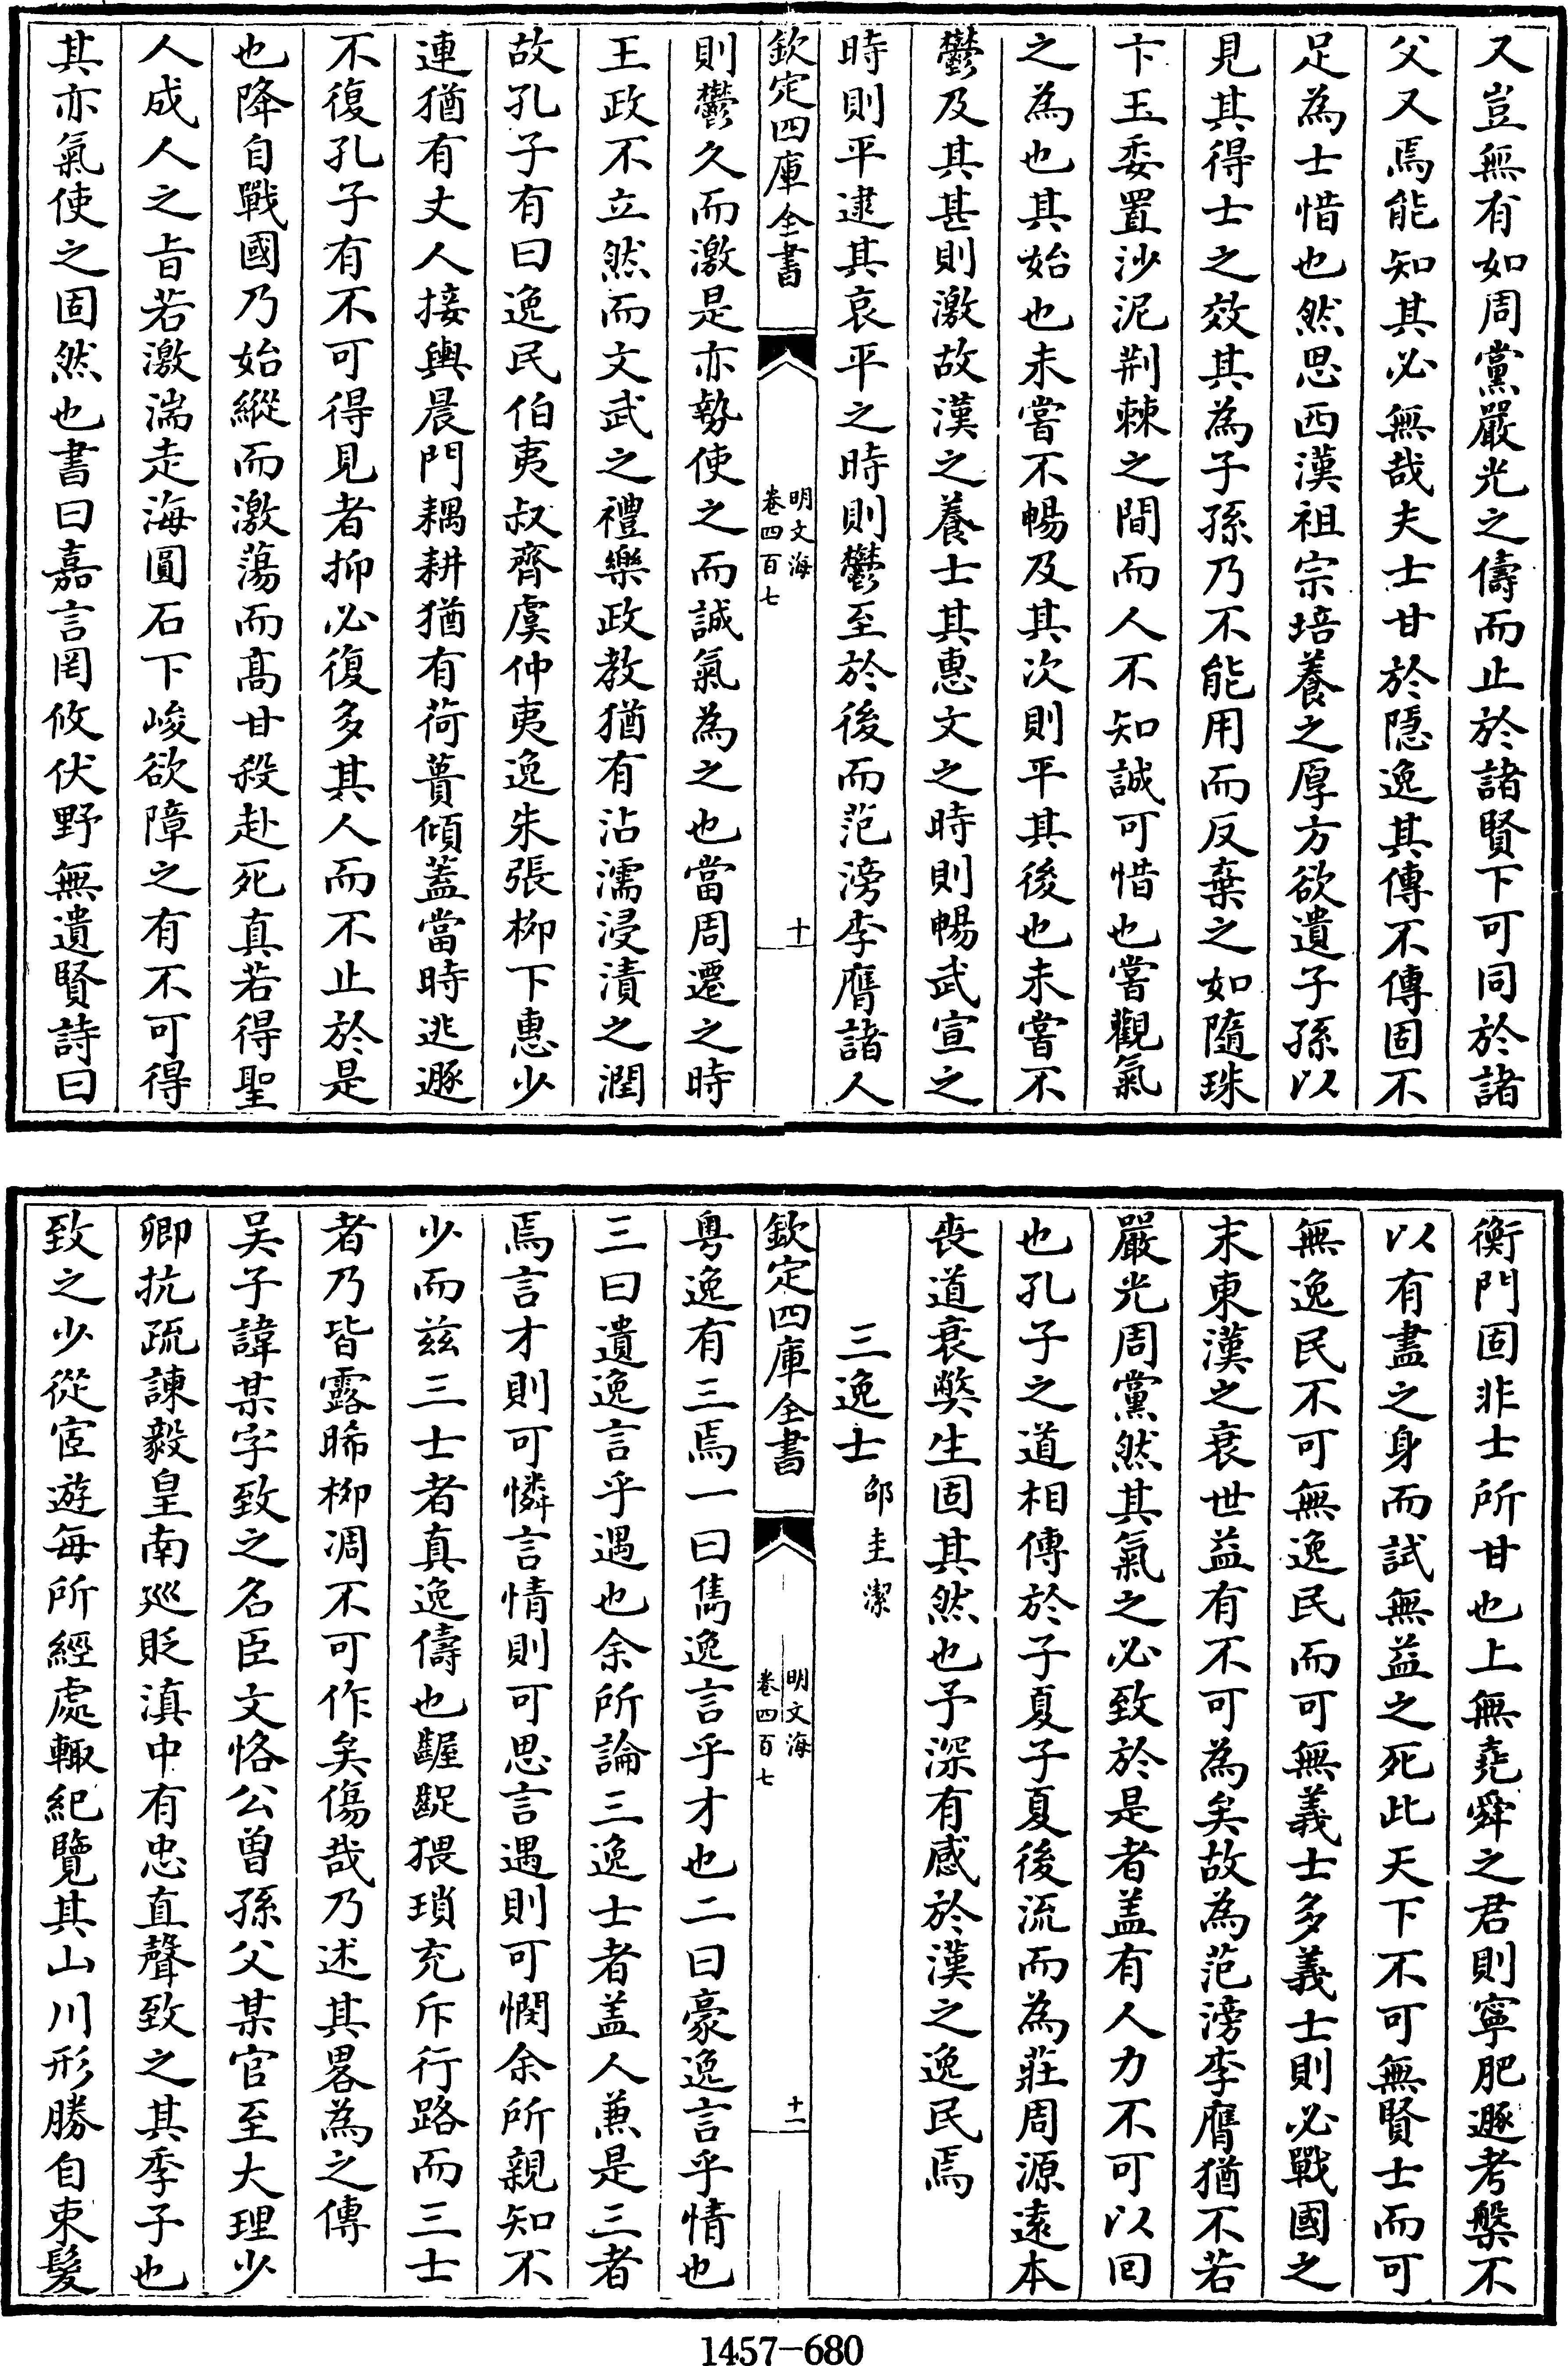 又豈無有如周黨嚴光之儔而止於諸賢下可同於諸
父又焉能知其必無哉夫士甘於隱逸其傳不傳固不
足為士惜也然思西漢祖宗培養之厚方欲遺子孫以
見其得士之效其為子孫乃不能用而反棄之如隨珠
卞玉委置沙泥荆棘之間而人不知誠可惜也嘗觀氣
之為也其始也未嘗不暢及其次則平其後也未嘗不
鬱及其甚則激故漢之養士其惠文之時則暢武宣之
時則平逮其哀平之時則鬱至於後而范滂李膺諸人
欽定四庫全書
明文海
卷四百七
十
則鬱久而激是亦勢使之而誠氣為之也當周遷之時
王政不立然而文武之禮樂政教猶有沾濡浸漬之潤
故孔子有曰逸民伯夷叔齊虞仲夷逸朱張柳下惠少
連猶有丈人接輿晨門耦耕猶有荷蕢傾蓋當時逃遯
不復孔子有不可得見者抑必復多其人而不止於是
也降自戰國乃始縱而激蕩而髙甘殺赴死真若得聖
人成人之旨若激湍走海圓石下峻欲障之有不可得
其亦氣使之固然也書曰嘉言罔攸伏野無遺賢詩曰
衡門固非士所甘也上無堯舜之君則寧肥遯考槃不
以有盡之身而試無益之死此天下不可無賢士而可
無逸民不可無逸民而可無義士多義士則必戰國之
末東漢之衰世益有不可為矣故為范滂李膺猶不若
嚴光周黨然其氣之必致於是者盖有人力不可以回
也孔子之道相傳於子夏子夏後流而為莊周源遠本
喪道衰獘生固其然也予深有感於漢之逸民焉
三逸士 邵圭潔
欽定四庫全書
明文海
卷四百七
十一
粤逸有三焉一曰雋逸言乎才也二曰豪逸言乎情也
三曰遺逸言乎遇也余所論三逸士者盖人兼是三者
焉言才則可憐言情則可思言遇則可憫余所親知不
少而兹三士者真逸儔也齷齪猥瑣充斥行路而三士
者乃皆露晞柳凋不可作矣傷哉乃述其畧為之傳
吴子諱某字致之名臣文恪公曽孫父某官至大理少
卿抗疏諫毅皇南廵貶滇中有忠直聲致之其季子也
致之少從宦遊每所經處輙紀覽其山川形勝自束髮
1457-680